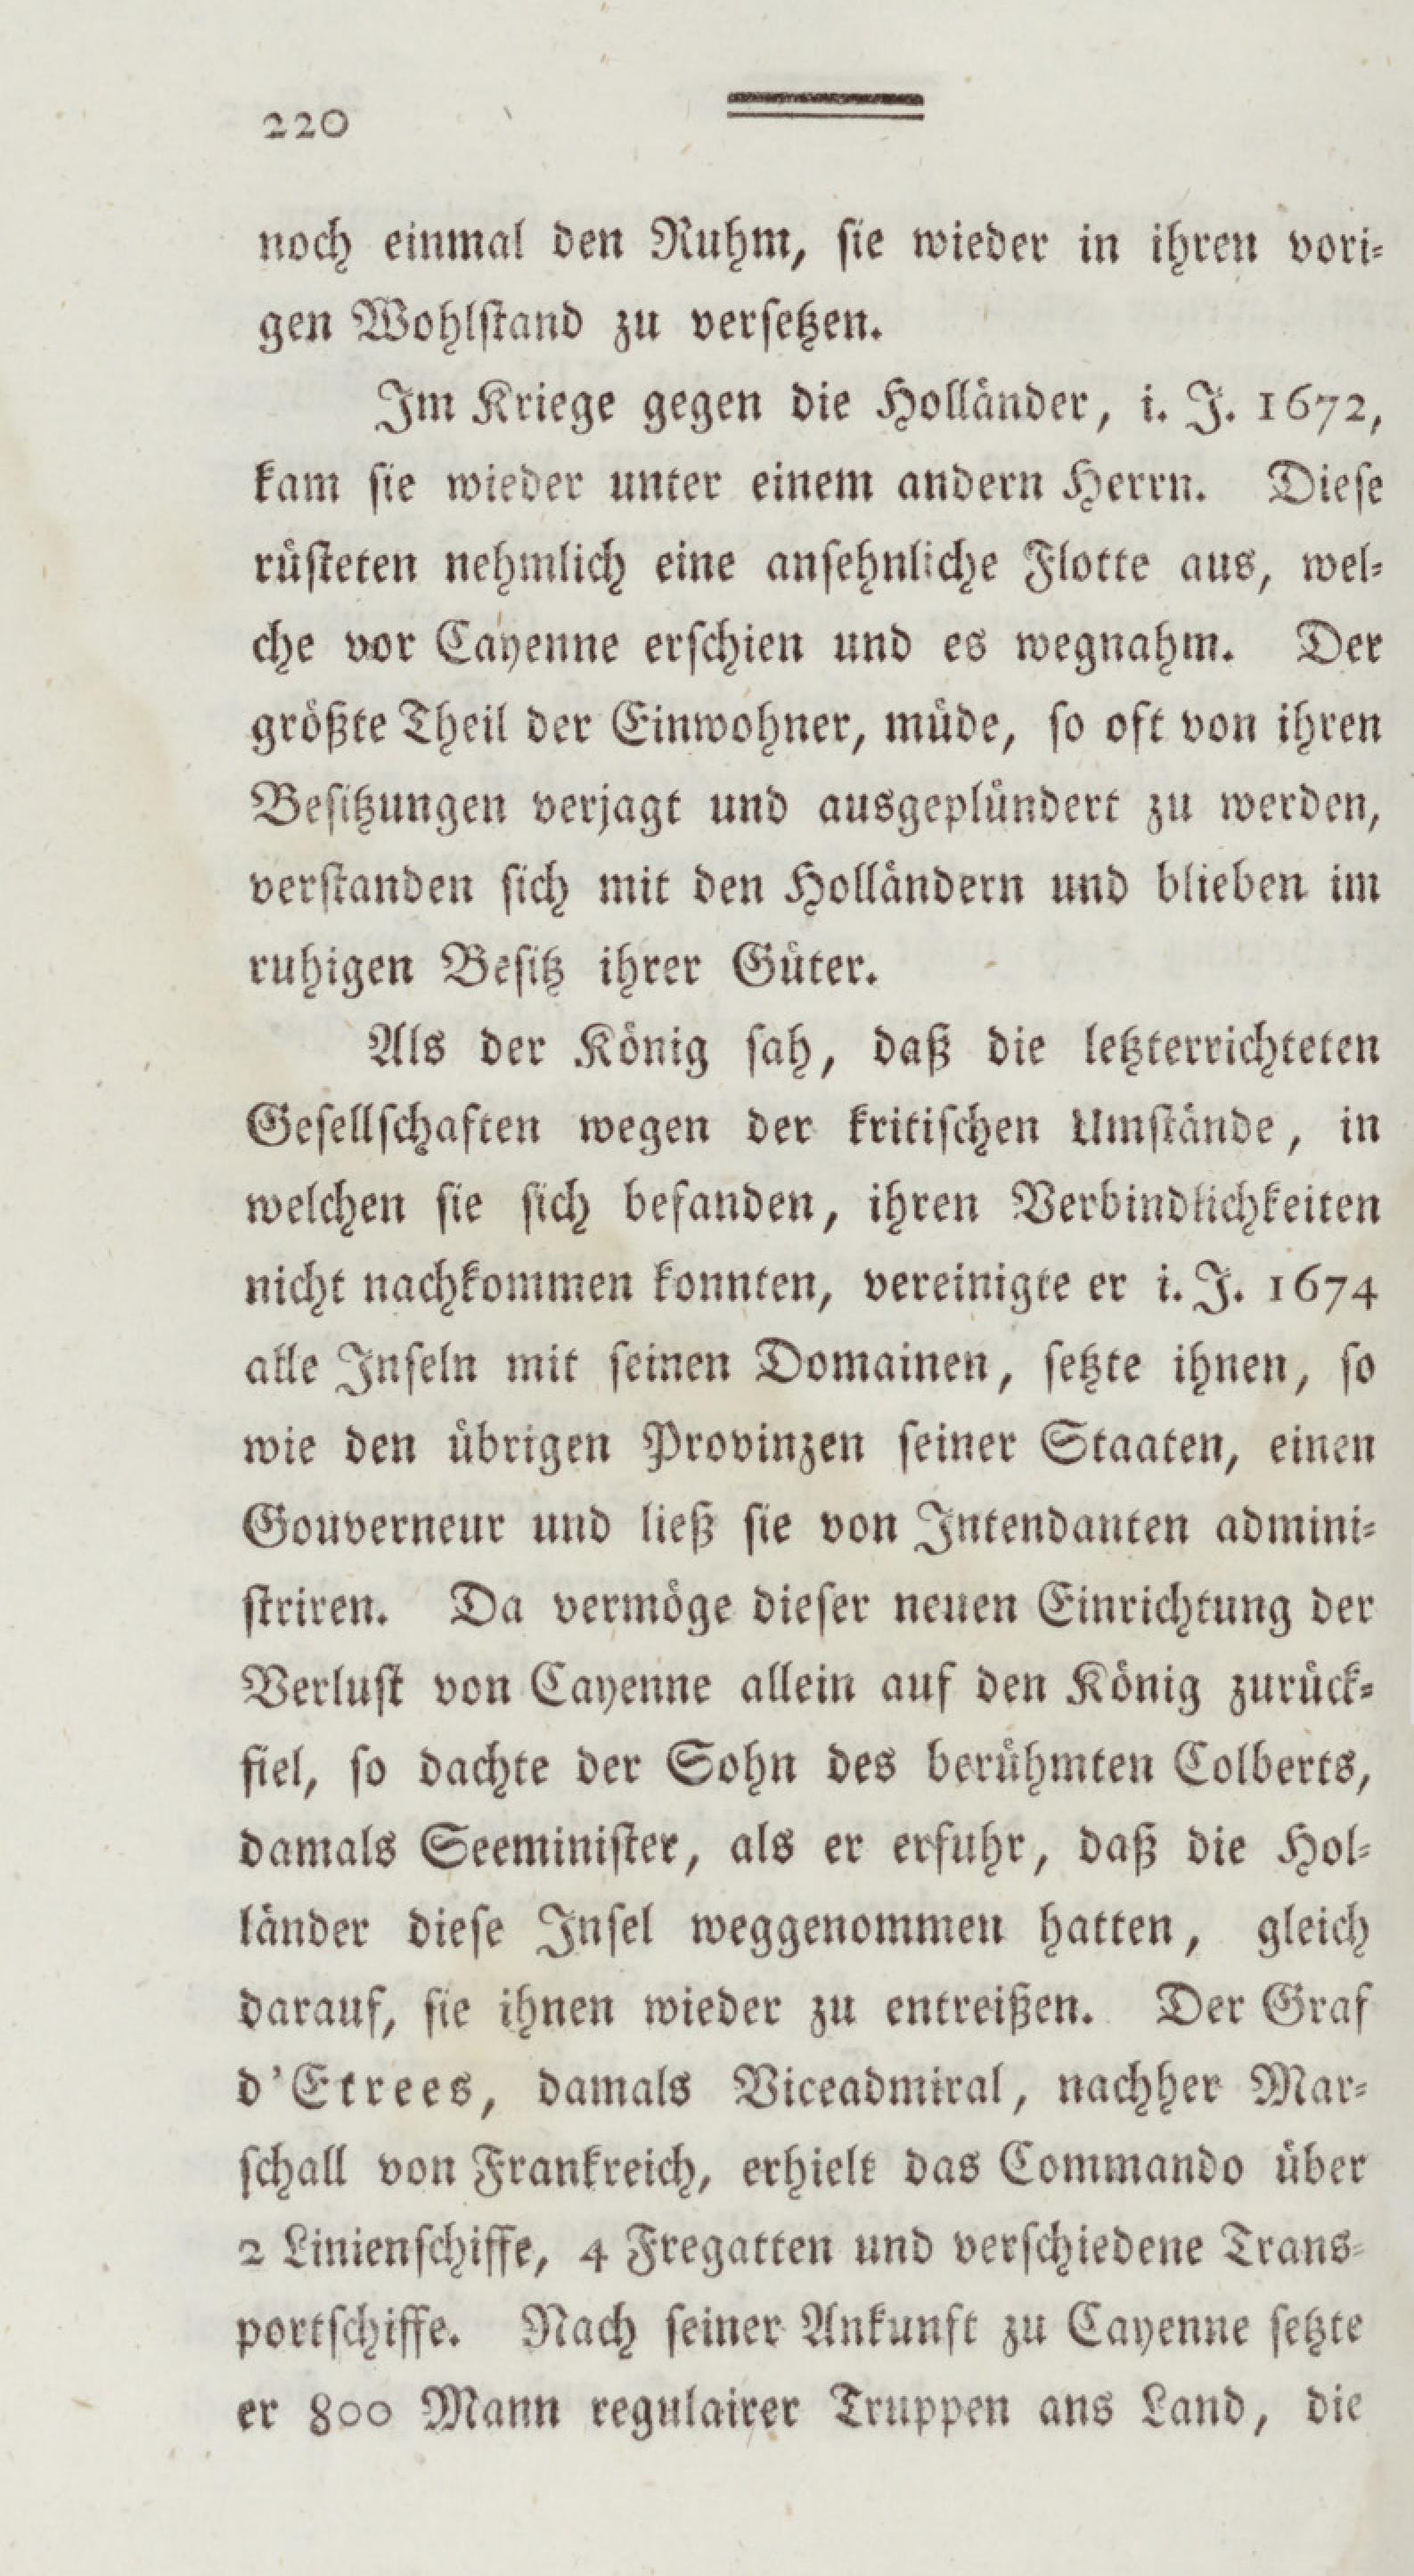 220
noch einmal den Ruhm, sie wieder in ihren vori-
gen Wohlstand zu versetzen.
Im Kriege gegen die Holländer, i. J. 1672,
kam sie wieder unter einem andern Herrn. Diese
rüsteten nehmlich eine ansehnliche Flotte aus, wel-
che vor Cayenne erschien und es wegnahm. Der
größte Theil der Einwohner, müde, so oft von ihren
Besitzungen verjagt und ausgeplündert zu werden,
verstanden sich mit den Holländern und blieben im
ruhigen Besitz ihrer Güter.
Als der König sah, daß die letzterrichteten
Gesellschaften wegen der kritischen Umstände, in
welchen sie sich befanden, ihren Verbindlichkeiten
nicht nachkommen konnten, vereinigte er i. J. 1674
alle Inseln mit seinen Domainen, setzte ihnen, so
wie den übrigen Provinzen seiner Staaten, einen
Gouverneur und ließ sie von Intendanten admini-
striren. Da vermöge dieser neuen Einrichtung der
Verlust von Cayenne allein auf den König zurück-
fiel, so dachte der Sohn des berühmten Colberts,
damals Seeminister, als er erfuhr, daß die Hol-
länder diese Insel weggenommen hatten, gleich
darauf, sie ihnen wieder zu entreißen. Der Graf
d'Etrees, damals Viceadmiral, nachher Mar-
schall von Frankreich, erhielt das Commando über
2 Linienschiffe, 4 Fregatten und verschiedene Trans-
portschiffe. Nach seiner Ankunft zu Cayenne setzte
er 800 Mann regulairer Truppen ans Land, die